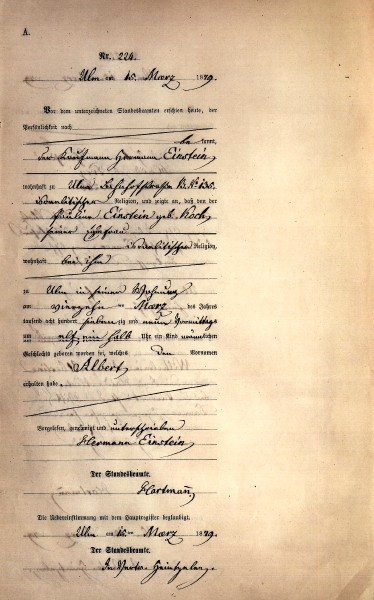 A.
Nr. 224.
Ulm am 15. März 1879.
Vor dem unterzeichneten Standesbeamten erschien heute, der
Persönlichkeit nach
be kannt,
der Kaufmann Hermann Einstein,
wohnhaft zu Ulm Bahnhofstraße B. No 135,
israelitischer Religion, und zeigte an, daß von der
Pauline Einstein geb. Koch,
seiner Ehefrau
israelitischer Religion,
wohnhaft bei ihm
zu Ulm in seiner Wohnung
am vierzehn ten März des Jahres
tausend acht hundert siebenzig und neun Vormittags
um elf ein halb Uhr ein Kind männlichen
Geschlechts geboren worden sei, welches den Vornamen
Albert
erhalten habe.
Vorgelesen, genehmigt und unterschrieben
Hermann Einstein,
Der Standesbeamte.
Hartmann
Die Uebereinstimmung mit dem Hauptregister beglaubigt.
Ulm am 15. ten März 1879.
Der Standesbeamte.
In Vertr.